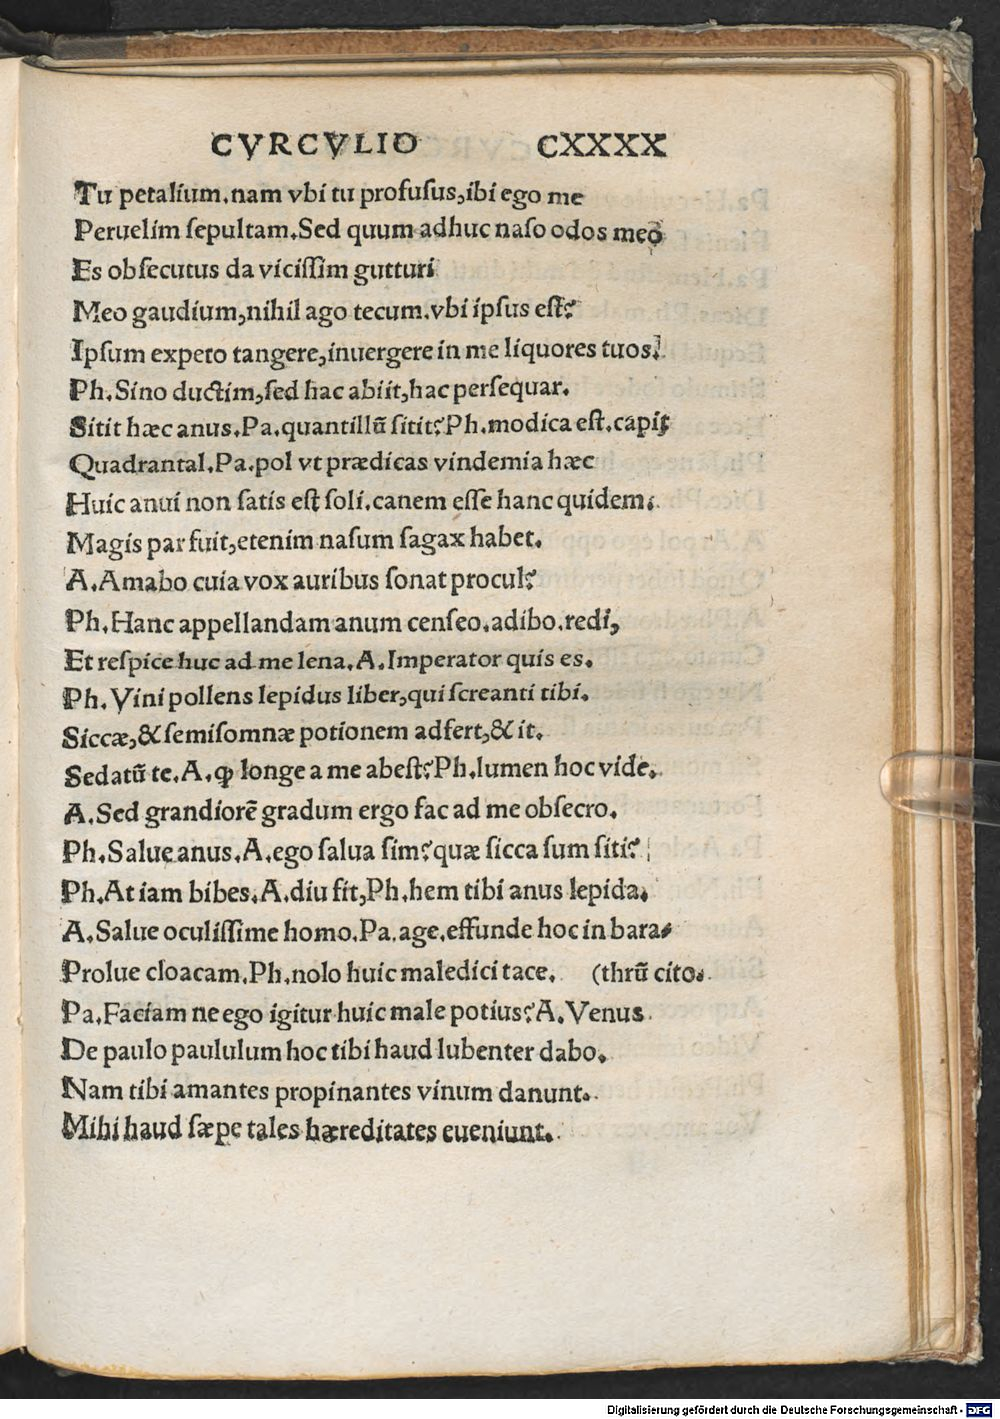 CVRCVLIO CXXXX
Tu petalium.nam vbi tu profuſus,ibi ego me
Peruelim ſepultam.Sed quum adhuc naſo odos meo
Es obſecutus da viciſſim gutturi
Meo gaudium,nihil ago tecum.vbi ipſus eſt?
Ipſum expeto tangere,inuergere in me liquores tuos.
Ph.Sino ductim,ſed hac abiit,hac perſequar.
Sitit hæc anus.Pa.quantillū ſitit?Ph.modica eſt.capit
Quadrantal.Pa.pol vt prædicas vindemia hæc
Huic anui non ſatis eſt ſoli.canem eſſe hanc quidem.
Magis par fuit,etenim naſum ſagax habet.
A.Amabo cuia vox auribus ſonat procul?
Ph.Hanc appellandam anum cenſeo.adibo.redi,
Et reſpice huc ad me lena.A.Imperator quis es.
Ph.Vini pollens lepidus liber,qui ſcreanti tibi.
Siccæ,&ſemiſomnæ potionem adfert,& it.
Sedatū te.A.ꝙ longe a me abeſt?Ph.lumen hoc vide.
A.Sed grandiorē gradum ergo fac ad me obſecro.
Ph.Salue anus.A.ego ſalua ſim?quæ ſicca ſum ſiti?
Ph.At iam bibes.A.diu fit,Ph.hem tibi anus lepida.
A.Salue oculiſſime homo.Pa.age.effunde hoc in bara⸗
Prolue cloacam.Ph.nolo huic maledici tace. (thrū cito.
Pa.Faciam ne ego igitur huic male potius?A.Venus
De paulo paululum hoc tibi haud lubenter dabo.
Nam tibi amantes propinantes vinum danunt.
Mihi haud ſæpe tales hæreditates eueniunt.
Digitalisierung gefördert durch die Deutsche Forschungsgemeinschaft - DFG